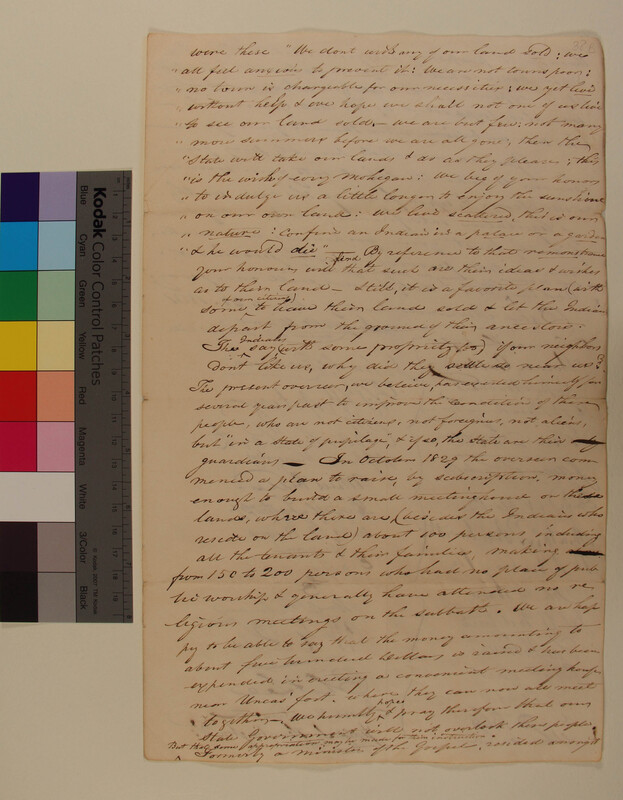 were these "We dont wish any of our land Sold; we
"all feel anxious to prevent it: We are not town poor;
"no town is chargeable for our necessities; we get livi
"without help & we hope we shall not one of us live
"to see our land sold. – we are but few: not many
"more summers before we are all gone; then the
"State will take our lands & do as they please; this
"is the wish of every Mohegan: We beg of your honors
"to indulge us a little longer to enjoy the sunshine
"on our own land: We live scattered, this is our
"nature: Confine an Indian in a palace or a golden
"& he would die" – By reference to that remonstrance
find
your honours, will that such are their ideas & wishes
as to their land – Still, it is a favorite plan (with
some to have their land sold & let the Indian
depart from the ground of their ancestors.
Indians
The say (with some propriety too) if your neighbors
Dont like us, why did they settle so near us?
The present overseer, we believe, has exerted himself for
several years past to improve the condition of the
people, who are not citizens, not foreigners, not aliens,
but "in a state of pupilage, & if so, the State are their
guardians – In October 1829 the overseer com
menced a plan to raise, by subscription, money
enough to build a small meetinghouse on these
lands, where there are (besides the Indians who
reside on the land) about 100 persons, including
all the tenants & their families, making
from 150 to 200 persons who had no place of pub
lic worship & generally have attended no re
ligious meetings on the sabbath. We are hap
py to be able to say that the money amounting to
about five hundred dollars is raised & has been
expended in erecting a convenient meeting house
near Uncas' fort. where they can now all meet
hope &
together – We humbly pray therefore that our
State Government will not overlook these people
But that some appropriation may be made for their instruction.
Formerly a minister of the Gospel resided amongst
Kodak Color Control Patches
Blue
Cyan
Green
Yellow
Red
Magenta
White
3/Color
Black